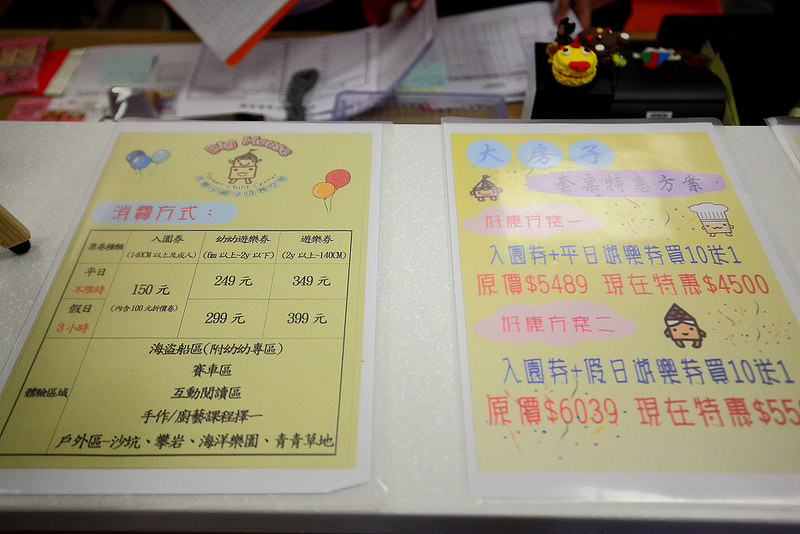 Big House
Super Child Center
消費方式：
票卷種類
入園券
(140CM以上及成人)
幼幼遊樂券
(6m以上-2y以下)
遊樂券
(2y以上-140CM)
平日
不限時
150 元
(內含100元折價卷)
249 元
349 元
假日
3小時
299 元
399 元
體驗區域
海盜船區(附幼幼專區)
賽車區
互動閱讀區
手作/廚藝課程擇一
戶外區-沙坑、攀岩、海洋樂園、青青草地
大房子
套票特惠方案
好康方案一
入園券+平日遊樂券買10送1
原價$5489 現在特惠$4500
好康方案二
入園券+假日遊樂券買10送1
原價$6039 現在特惠$55